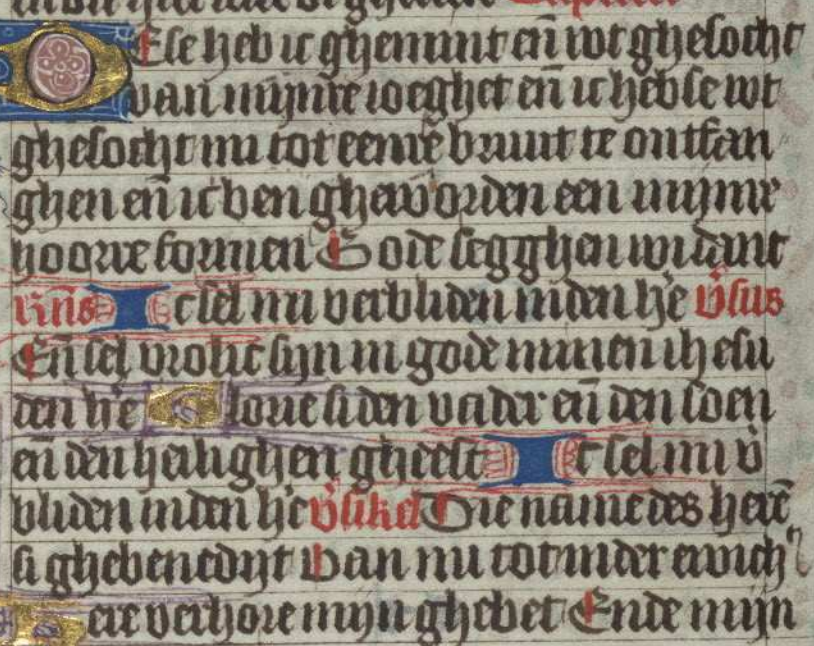 Dese heb ic ghemint en̄ wt ghesocht
van mijnre ioeghet en̄ ic hebse wt
ghesocht mi tot eenre bruut te ontfan
ghen en̄ ic ben ghewordden een mijnre
hoorre formen Gode segghen wi danc
Rn̄s Ic sel mi verbliden inden he' v̾sus
En̄ sel vrolic sijn in gode minen ihesu
den he' Glorie si den vader en̄ den soen
en̄ den heilighen gheest Ic sel mi v̾
bliden inden he' v̾sikel Die name des herē
si ghebenedijt Van nu tot inder ewich'
Here verhore mijn ghebet Ende mijn